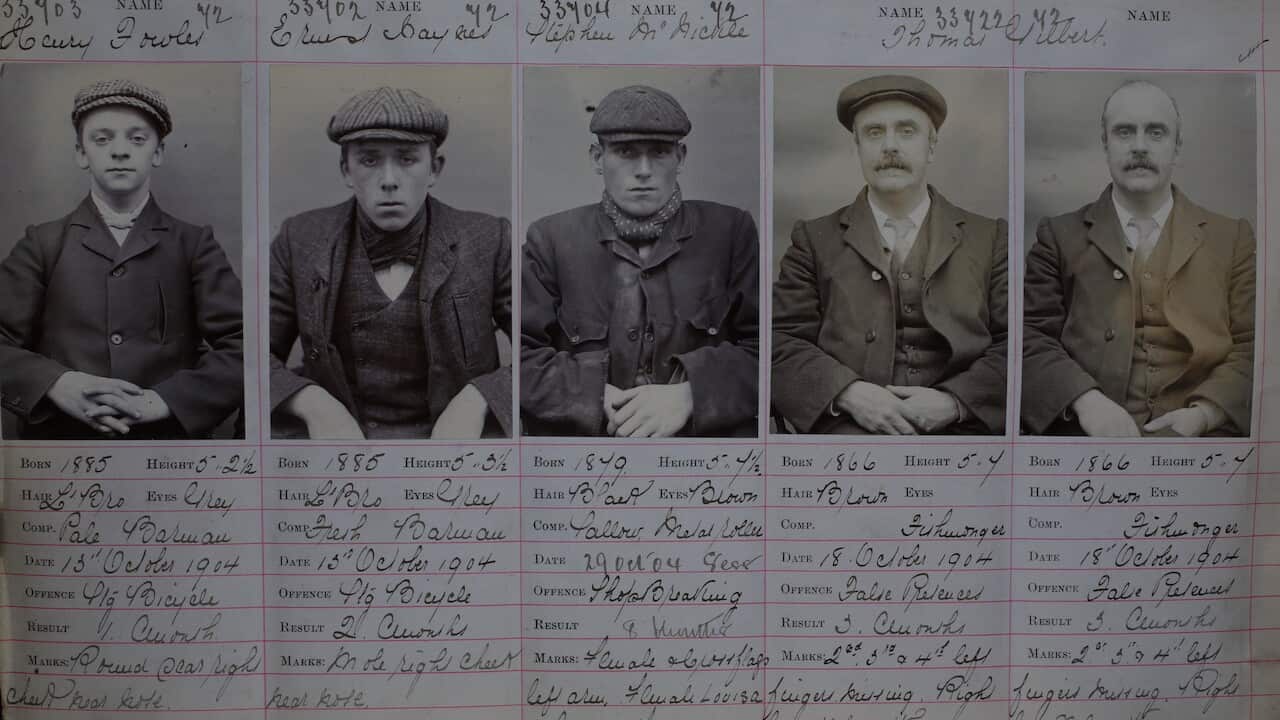 33903 NAME 42
Henry Fowles
33902 NAME 42
Ernest Haynes
33904 NAME 42
Stephen McNickle
NAME 33922 42 NAME
Thomas Gilbert.
BORN 1885 HEIGHT 5-2½
HAIR L'Bro EYES Grey
COMP. Pale Barman
DATE 13" October 1904
OFFENCE Stg Bicycle
RESULT 1. Cmonth
MARKS: Round scar right
cheek near nose.
BORN 1885 HEIGHT 5-3½
HAIR L'Bro EYES Grey
COMP. Fresh Barman
DATE 13" October 1904
OFFENCE Stg Bicycle
RESULT 2. Cmonths
MARKS: Mole right cheek
near nose.
BORN 1879. HEIGHT 5-4½
HAIR Black EYES Brown
COMP. Sallow Metal roller
DATE 29 Oct 04 Sess
OFFENCE Shop Breaking
RESULT 8 Months
MARKS: Female & Cross flags
left arm, Female Louisa
BORN 1866 HEIGHT 5-7
HAIR Brown EYES
COMP. Fishmonger
DATE 18 October 1904
OFFENCE False Pretences
RESULT 3. Cmonths
MARKS: 2nd 3rd & 4th left
fingers missing. Right
BORN 1866 HEIGHT 5-7
HAIR Brown EYES
COMP. Fishmonger
DATE 18" October 1904
OFFENCE False Pretences
RESULT 3. Cmonths
MARKS: 2nd 3rd & 4th left
fingers missing. Right